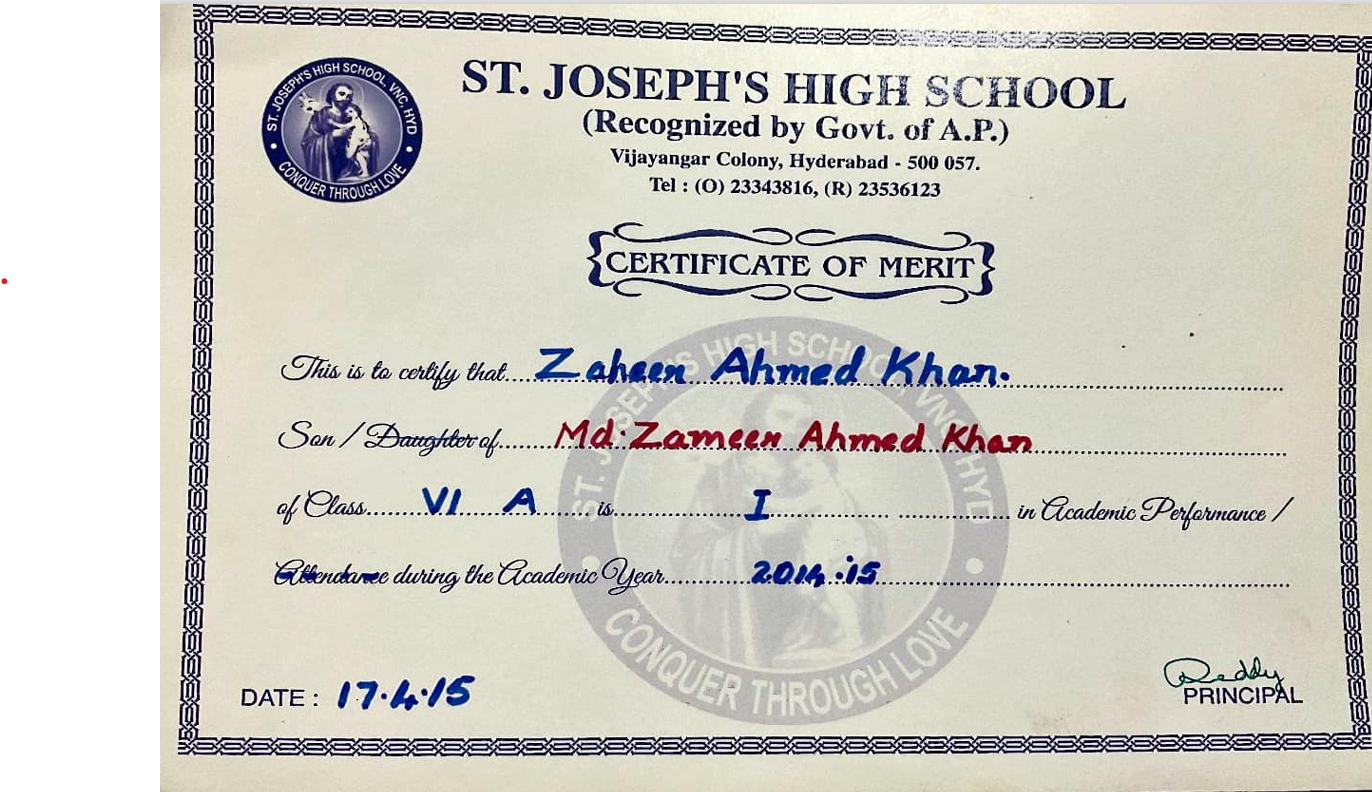 ST. JOSEPH'S HIGH SCHOOL, VNC, HYD
CONQUER THROUGH LOVE
ST. JOSEPH'S HIGH SCHOOL
(Recognized by Govt. of A.P.)
Vijayangar Colony, Hyderabad - 500 057.
Tel : (O) 23343816, (R) 23536123
CERTIFICATE OF MERIT
This is to certify that Zaheen Ahmed Khan.
Son / Daughter of Md. Zameen Ahmed Khan
of Class VI A is I in Academic Performance /
Attendance during the Academic Year 2014.15
ST. JOSEPH'S HIGH SCHOOL, VNC, HYD
CONQUER THROUGH LOVE
DATE : 17.4.15
Reddy
PRINCIPAL